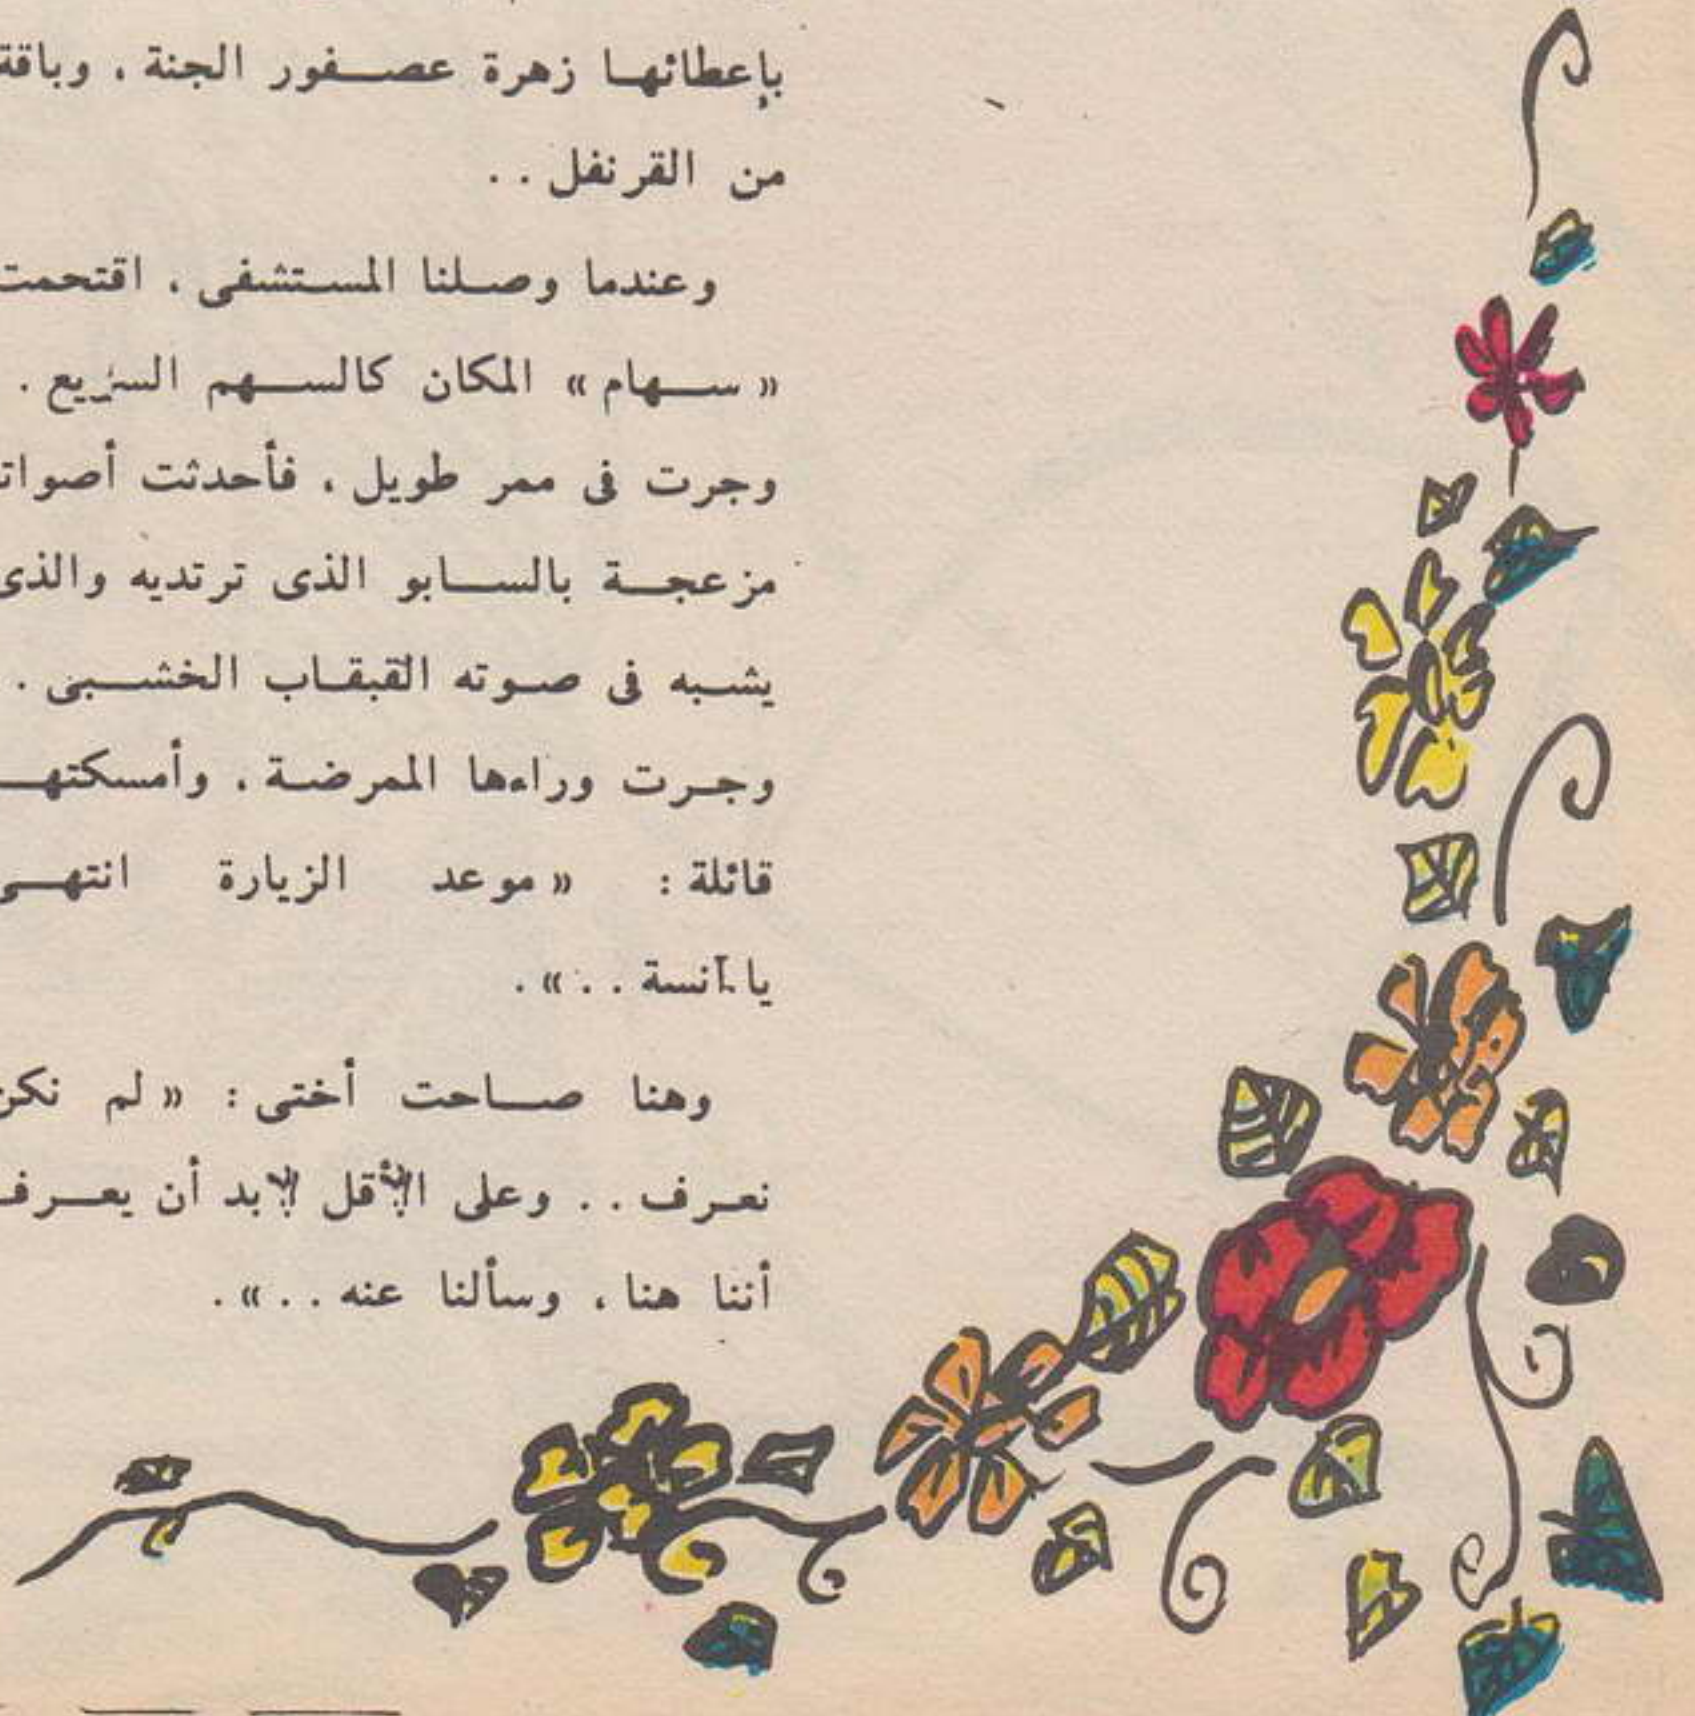 بإعطائها زهرة عصفور الجنة ، وباقة
من القرنفل ..
وعندما وصلنا المستشفى ، اقتحمت
« سهام » المكان كالسهم السريع .
وجرت فى ممر طويل ، فأحدثت
مزعجة بالسابو الذى ترتديه والذى
يشبه فى صوته القبقاب الخشبى .
وجرت وراءها الممرضة ، وأمسكتهـ
قائلة : « موعد الزيارة انتهى
يا آنسة .. » .
وهنا صاحت أختى : « لم نكن
نعرف .. وعلى الأقل لابد أن يعرف
أننا هنا ، وسألنا عنه .. » .